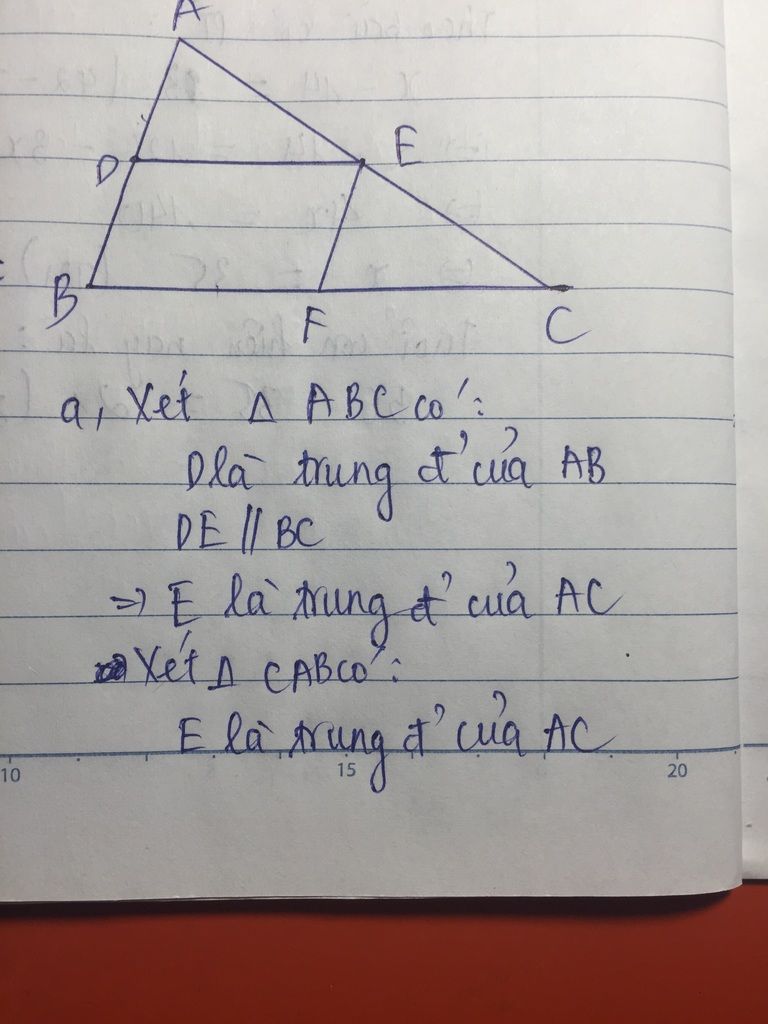 A
D
E
B
F
C
a, Xét Δ ABC có:
D là trung đ' của AB
DE // BC
=> E là trung đ' của AC
Xét Δ CAB có:
E là trung đ' của AC
10 15 20